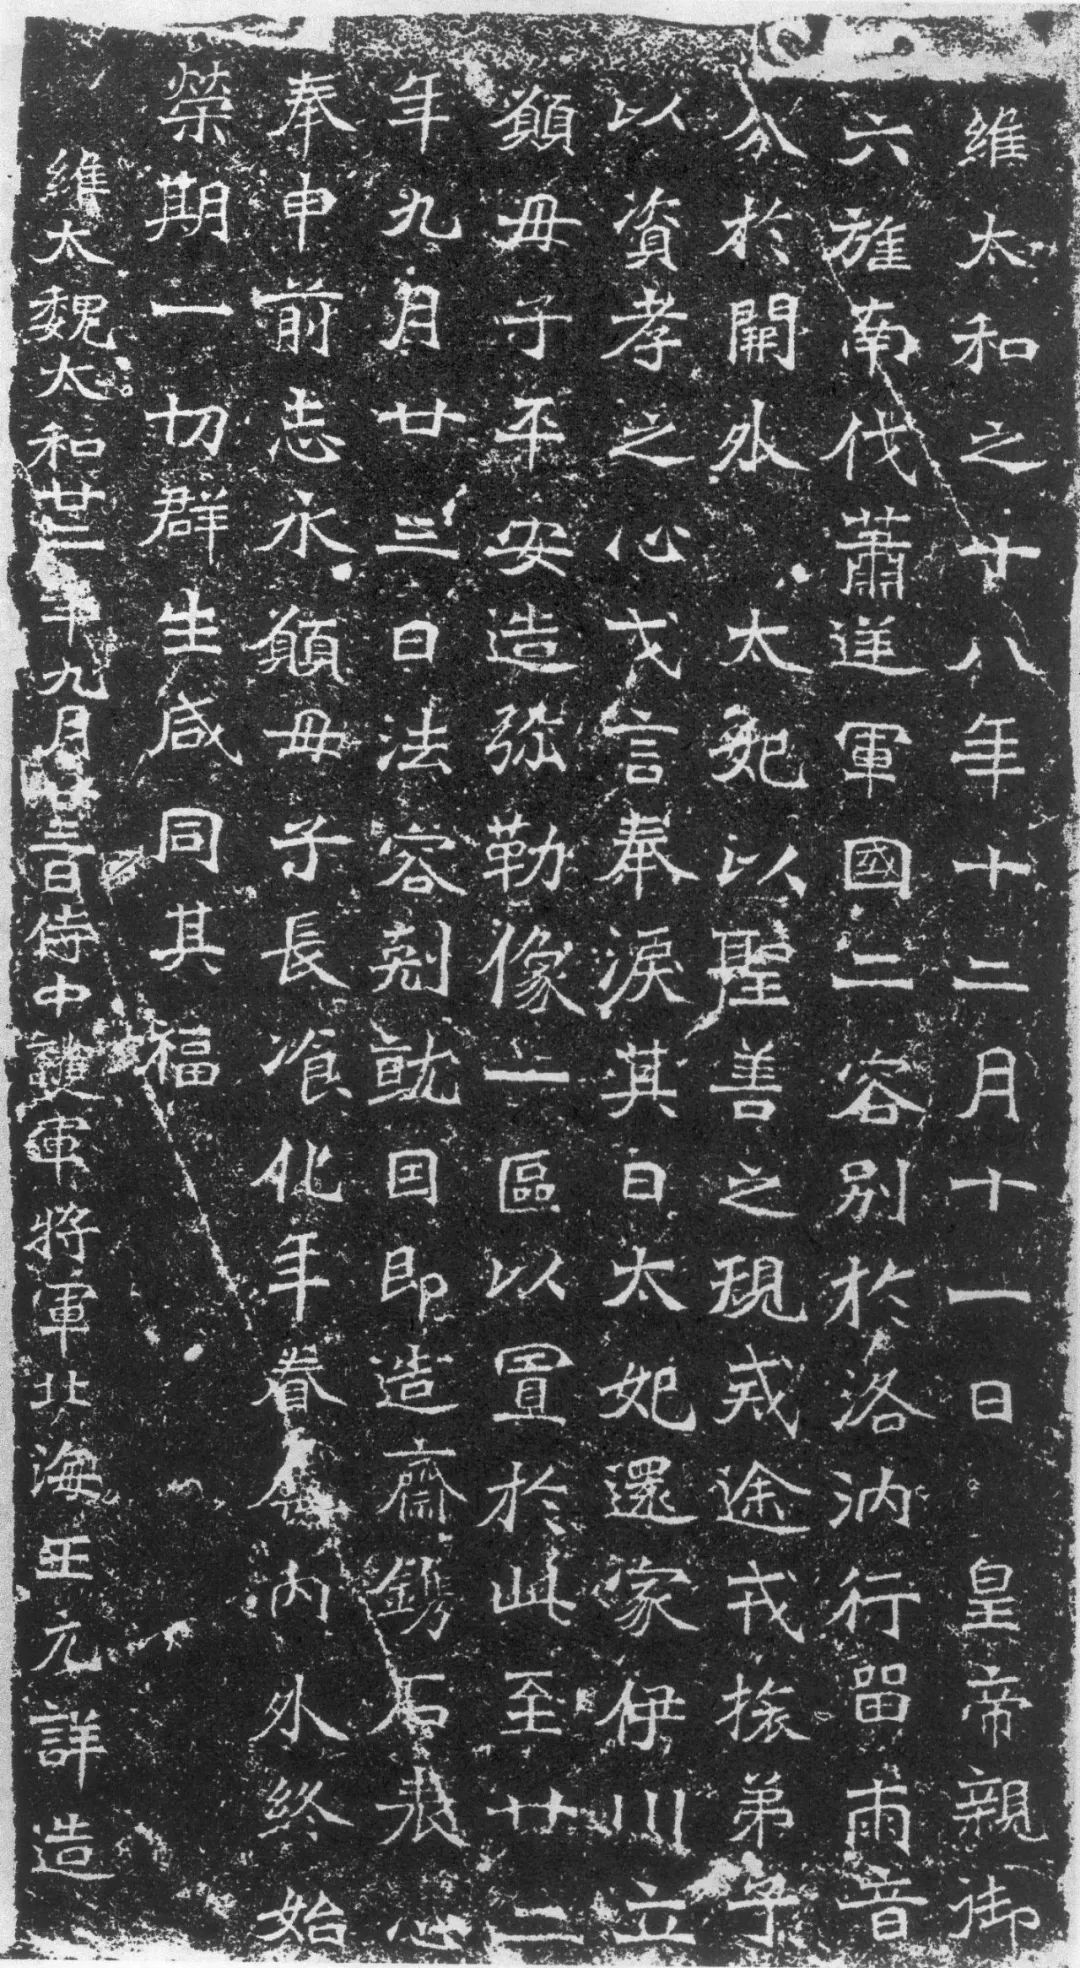 維太和之十八年十二月十一日皇帝親御
六旌南伐蕭逆軍國二容別於洛汭行留兩音
分於闕外太妃以聖善之規戒途戎旅弟子
以資孝之心戈言奉淚其日太妃還家伊川立
願毋子平安造弥勒像一區以置於此至廿二
年九月廿三日法容剋就因即造齋鐫石表心
奉申前志永願毋子長飡化年眷屬內外終始
榮期一切群生咸同其福
維太魏太和廿二年九月廿三日侍中護軍將軍北海王元詳造